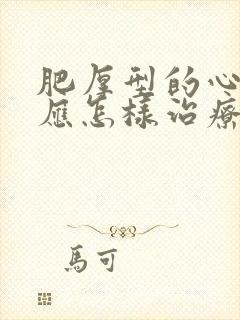 肥厚型的心
應怎樣治療
馬可